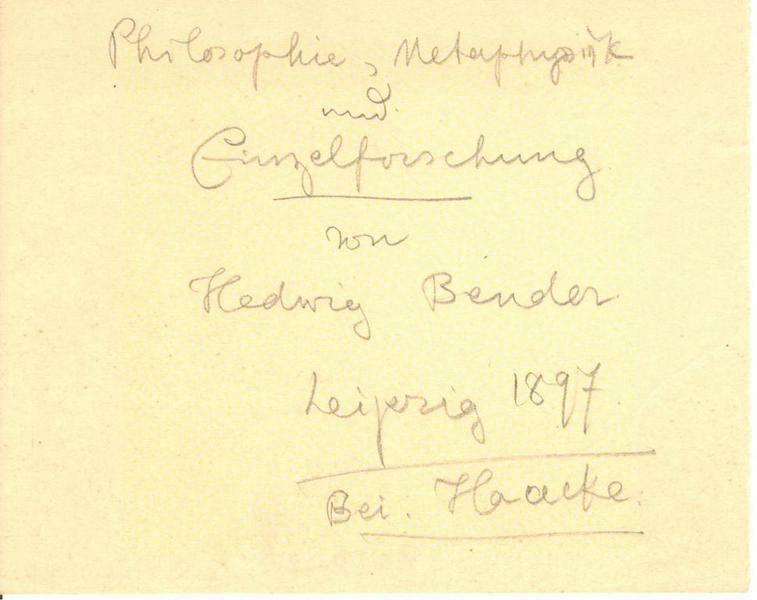 Philosophie, Metaphysik
und
Einzelforschung
von
Hedwig Bender
Leipzig 1897.
Bei. Haacke.